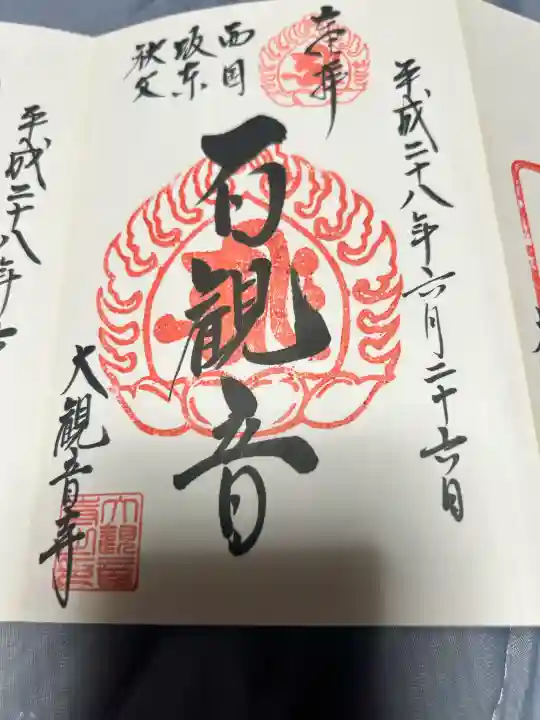 平成二十八年六月二十六日
奉拝
西国
坂東
秩父
百観音
大観音寺
平成二十八年六